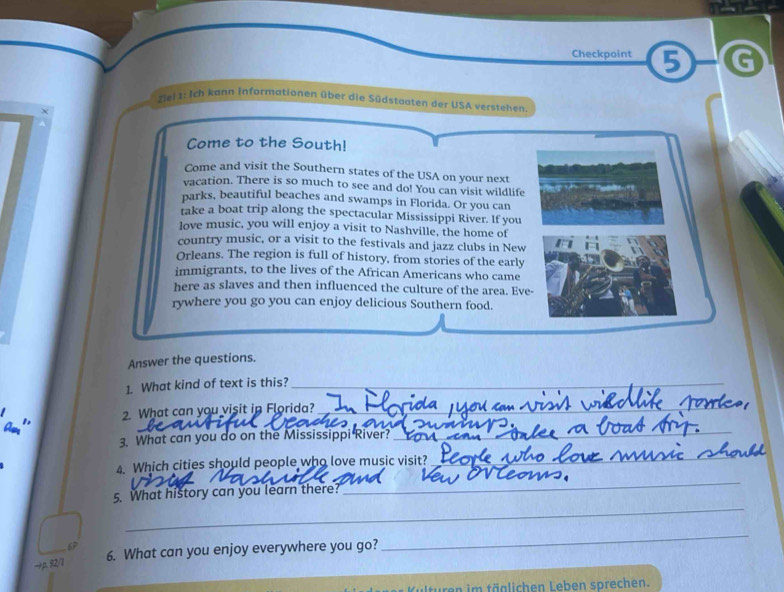 Checkpoint 5 G
Ziel 1: Ich kann Informationen über die Südstaaten der USA verstehen.
Come to the South!
Come and visit the Southern states of the USA on your next
vacation. There is so much to see and do! You can visit wildlife
parks, beautiful beaches and swamps in Florida. Or you can
take a boat trip along the spectacular Mississippi River. If you
love music, you will enjoy a visit to Nashville, the home of
country music, or a visit to the festivals and jazz clubs in New
Orleans. The region is full of history, from stories of the early
immigrants, to the lives of the African Americans who came
here as slaves and then influenced the culture of the area. Eve-
rywhere you go you can enjoy delicious Southern food.
Answer the questions.
1. What kind of text is this?
2. What can you visit in Florida? In Florida, you can visit wildlife
beautiful beaches, and swamps.
3. What can you do on the Mississippi River? You can take a boat trip.
4. Which cities should people who love music visit? People who love music should
visit Nashville and New Orleans.
5. What history can you learn there?
6. What can you enjoy everywhere you go?
→ p. 92/1
im täglichen Leben sprechen.